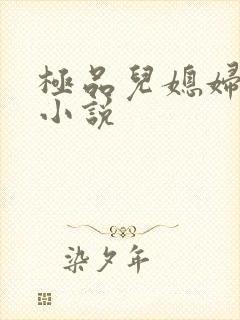 極品兒媳婦
小説
染夕年